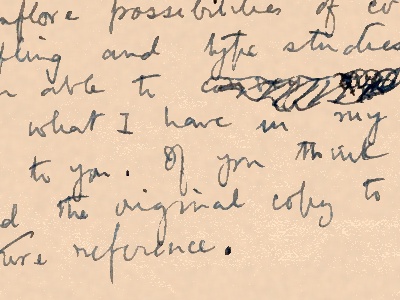 explore possibilities of co
fling and type studies
able to
what I have in my
to you. If you think
the original copy to
reference.